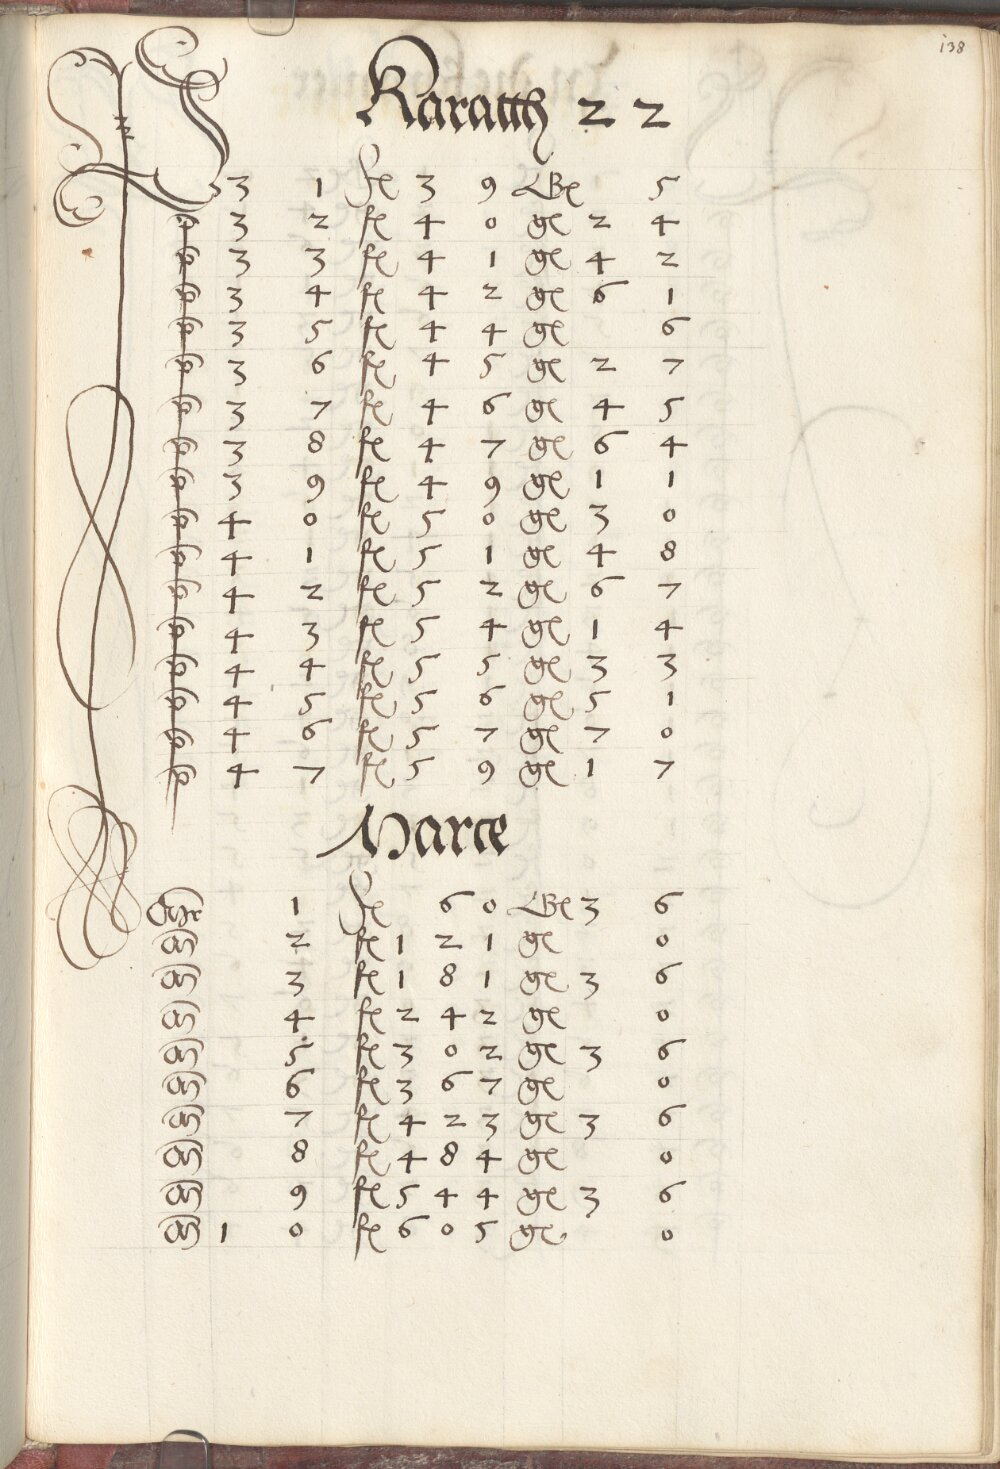 138
Karatth 22
3 1 fl 3 9 ß 5
3 2 fl 4 0 ß 2 4
3 3 fl 4 1 ß 4 2
3 4 fl 4 2 ß 6 1
3 5 fl 4 4 ß 6
3 6 fl 4 5 ß 2 7
3 7 fl 4 6 ß 4 5
3 8 fl 4 7 ß 6 4
3 9 fl 4 9 ß 1 1
4 0 fl 5 0 ß 3 0
4 1 fl 5 1 ß 4 8
4 2 fl 5 2 ß 6 7
4 3 fl 5 4 ß 1 4
4 4 fl 5 5 ß 3 3
4 5 fl 5 6 ß 5 1
4 6 fl 5 7 ß 7 0
4 7 fl 5 9 ß 1 7
Marce
1 fl 6 0 ß 3 6
2 fl 1 2 1 ß 0
3 fl 1 8 1 ß 3 6
4 fl 2 4 2 ß 0
5 fl 3 0 2 ß 3 6
6 fl 3 6 7 ß 0
7 fl 4 2 3 ß 3 6
8 fl 4 8 4 ß 0
9 fl 5 4 4 ß 3 6
1 0 fl 6 0 5 ß 0